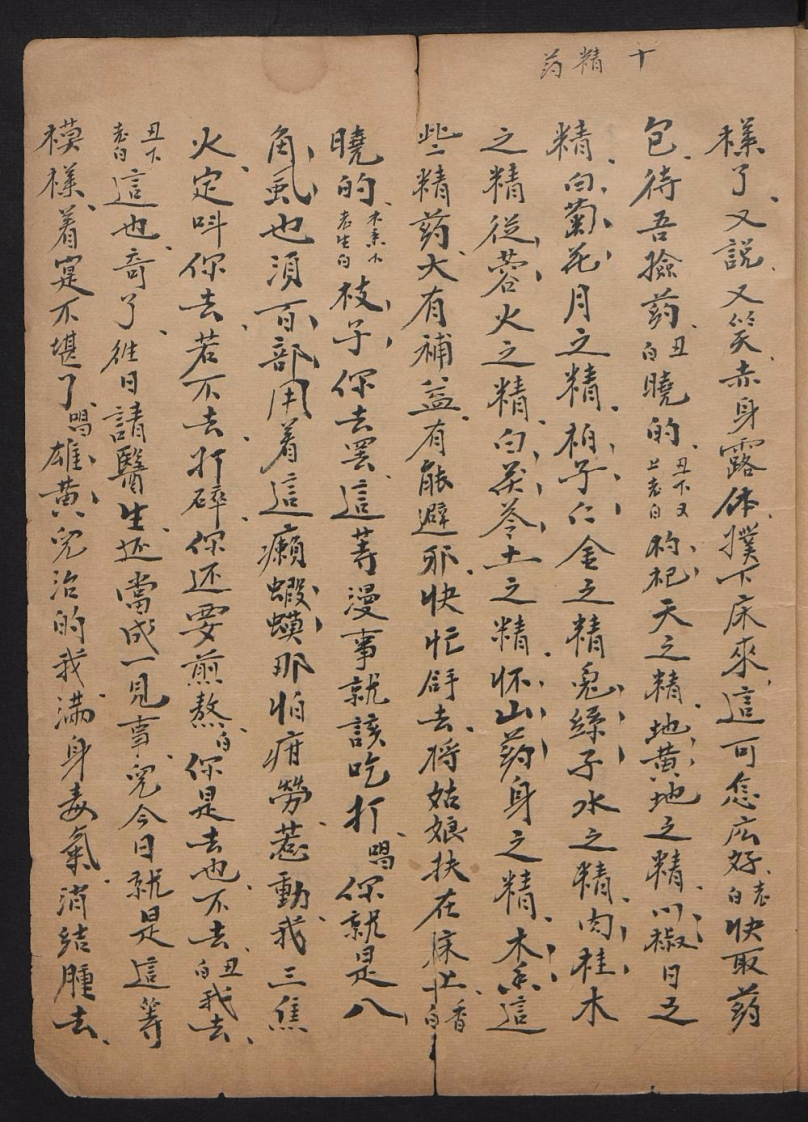 十精药
樣了又說又笑赤身露体撲下床來這可怎広好老白快取药
包待吾撿药丑白曉的丑下又上老白杓杞天之精地黄地之精川椒日之
精白菊花月之精柏子仁金之精兔絲子水之精肉桂木
之精從蓉火之精白茯苓土之精怀山药身之精木香這
些精药大有補益有能避邪快忙舒去将姑娘扶在床上香白
曉的木香下老生白枝子你去罢這等漫事就該吃打唱你就是八
角虱也須百部用着這癩蝦蟆那怕疳勞惹動我三焦
火定叫你去若不去打碎你还要煎熬白你是去也不去丑白我去
丑下老白這也奇了往日請醫生还當成一見事兒今日就是這等
模樣着寔不堪了唱雄黄兒治的我满身毒氣消結腫去